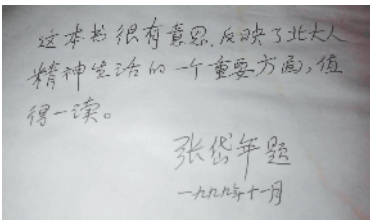 这本书很有意思，反映了北大人
精神生活的一个重要方面，值
得一读。
张岱年题
一九九九年十一月